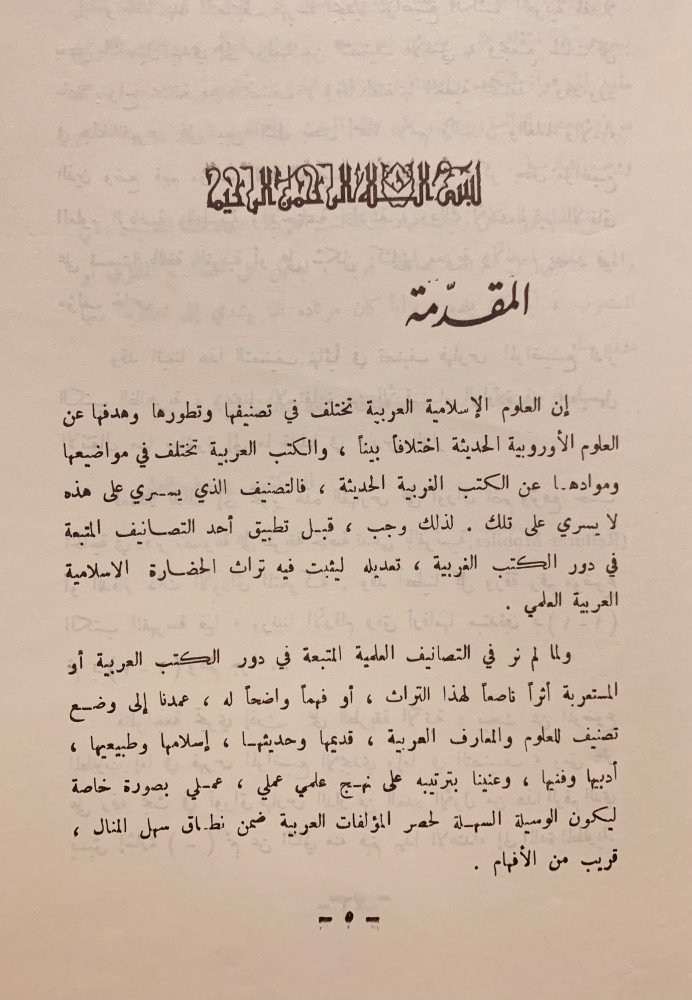 بسم الله الرحمن الرحيم
المقدّمة
إن العلوم الإسلامية العربية تختلف في تصنيفها وتطورها وهدفها عن
العلوم الأوروبية الحديثة اختلافاً بيناً ، والكتب العربية تختلف في مواضيعها
وموادها عن الكتب الغربية الحديثة ، فالتصنيف الذي يسري على هذه
لا يسري على تلك . لذلك وجب ، قبل تطبيق أحد التصانيف المتبعة
في دور الكتب الغربية ، تعديله ليثبت فيه تراث الحضارة الاسلامية
العربية العلمي .
ولما لم نر في التصانيف العلمية المتبعة في دور الكتب العربية أو
المستعربة أثراً ناصعاً لهذا التراث ، أو فهماً واضحاً له ، عمدنا إلى وضع
تصنيف للعلوم والمعارف العربية ، قديمها وحديثها ، إسلامها وطبيعيها ،
أدبيها وفنيها ، وعنينا بترتيبه على نهج علمي عملي ، عملي بصورة خاصة
ليكون الوسيلة السهلة لحصر المؤلفات العربية ضمن نطاق سهل المنال ،
قريب من الأفهام .
- ٥ -